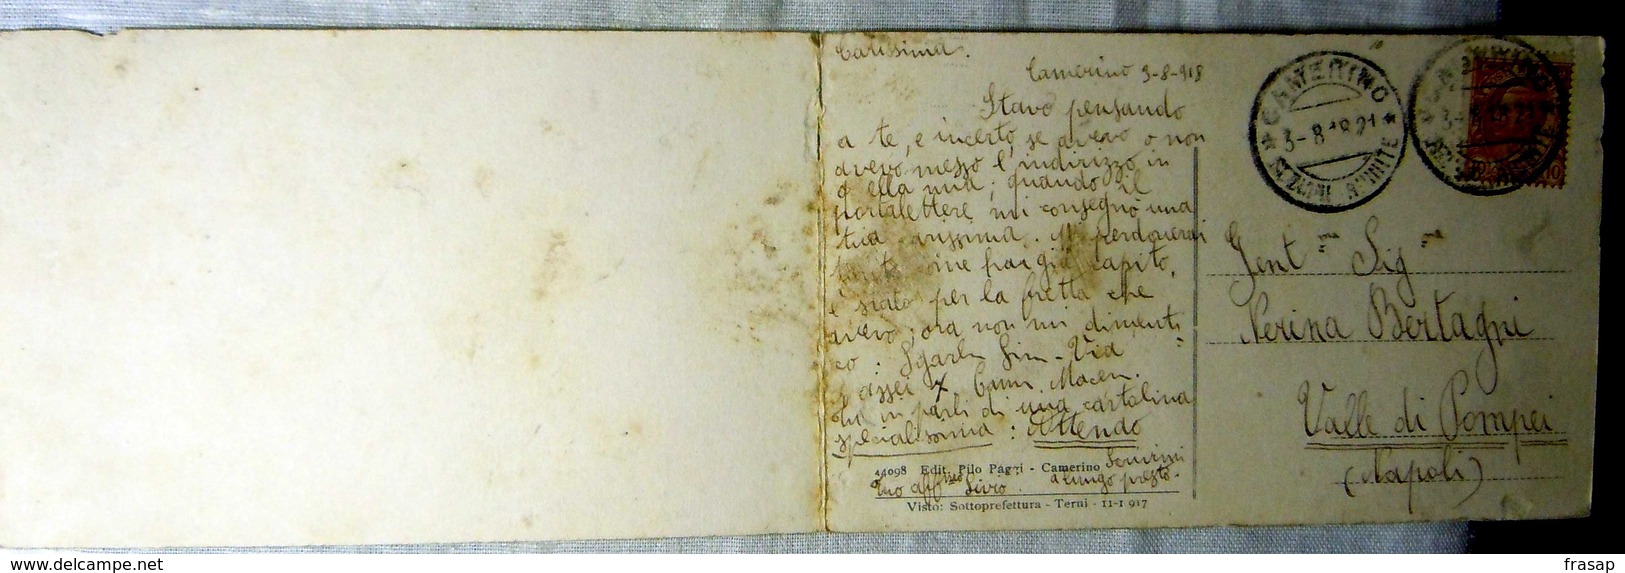 Carissima.
Camerino 3-8-918
Stavo pensando
a te, e incerto, se avevo o non
avevo messo l'indirizzo in
quella mia; quando il
portalettere mi consegnò una
tua carissima. Mi perdonerai
come hai già capito,
è stato per la fretta che
avevo; ora non mi dimenti
co: Sgarbi Via
7 Cam. Macer.
Tu mi parli di una cartolina
specialissima: Attendo
Scrivimi
a lungo presto.
Tuo aff.mo
44098 Edit. Pilo Paggi - Camerino
Visto: Sottoprefettura - Terni - 11-1 917
CAMERINO
3-8-18 21
3-8-18 21
10
Gent.ma Sig.na
Nerina Bertagni
Valle di Pompei
(Napoli)
frasap